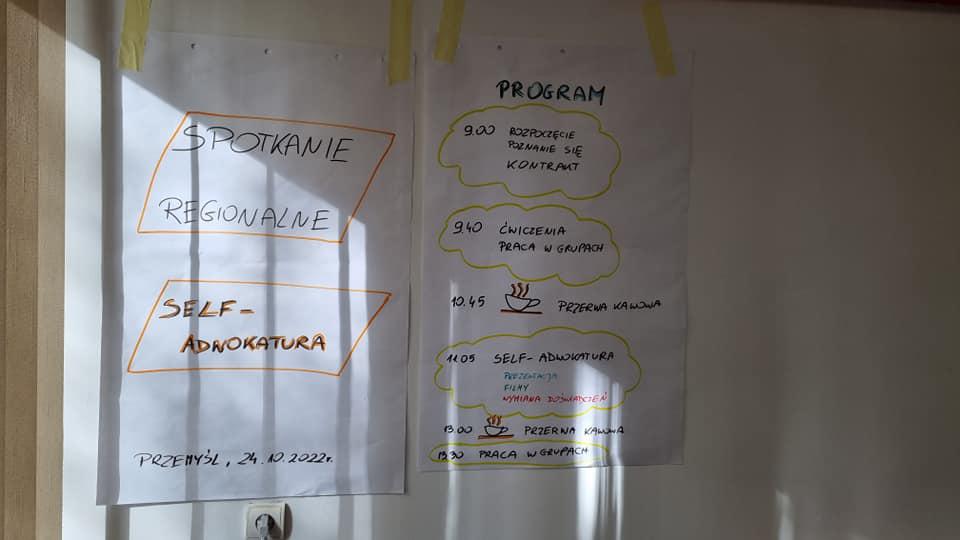 SPOTKANIE
REGIONALNE
SELF-
ADWOKATURA
PRZEMYŚL, 24.10.2022r.
PROGRAM
9.00 ROZPOCZĘCIE
POZNANIE SIĘ
KONTRAKT
9.40 ĆWICZENIA
PRACA W GRUPACH
10.45 PRZERWA KAWOWA
11.05 SELF-ADWOKATURA
PREZENTACJA
FILMY
WYMIANA DOŚWIADCZEŃ
13.00 PRZERWA KAWOWA
13.30 PRACA W GRUPACH